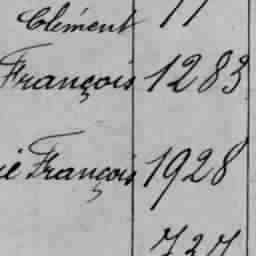 Clément
François 1283
ie François 1928
727